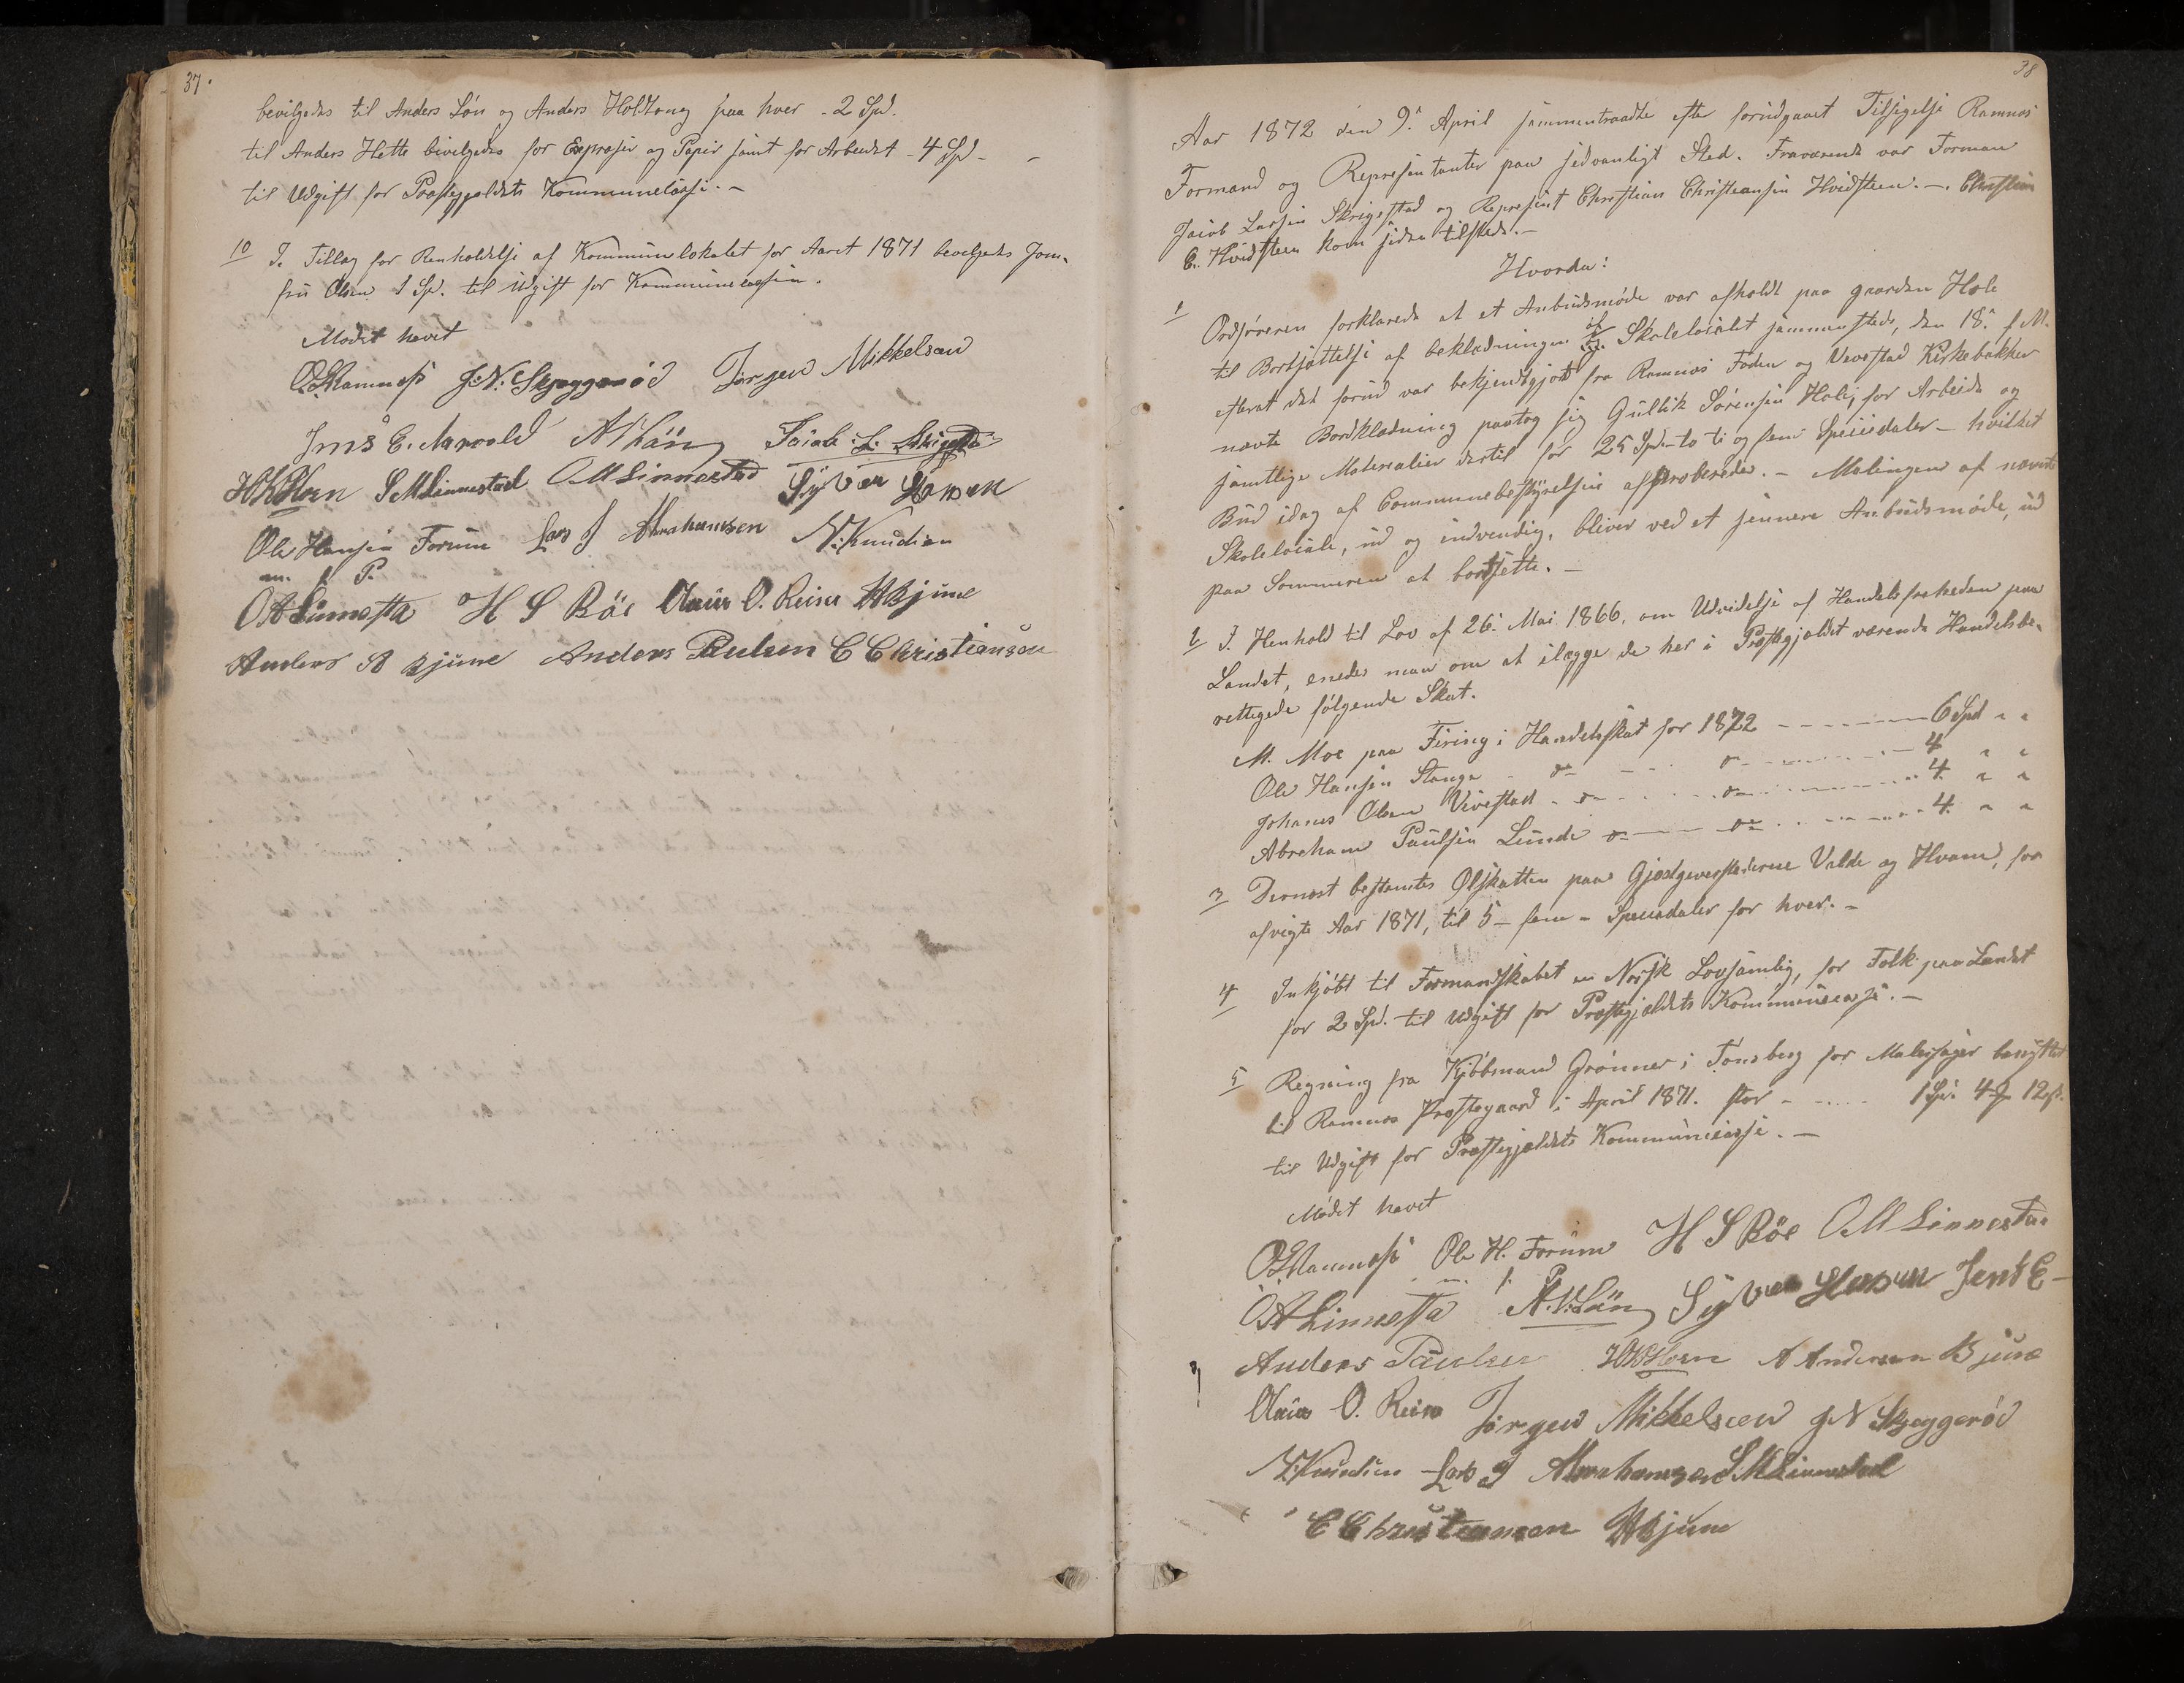 37.
bevilgedes til Anders Lön og Anders Holtong paa hver - 2 Spd.
til Anders Hette bevilgedes for Expresser og Papir samt for Arbeidet - 4 Spd -
til Udgift for Præstegjeldets Kommunecasse. -
10 I. Tillæg for Renholdelse af Kommunelokalet for Aaret 1871 bevilgedes Jom-
fru Olsen 1 Spd. til Udgift for Kommunecassen.
Mödet hævet
O. Ramnæs J. N. Skjeggeröd Jörgen Mikkelsen
Jens E. A. Lön Jacob L. Skrigstad
H Horn S M Linnestad O M Linnestad Syver Hansen
Ole Hansen Forum Lars J Abrahamsen N. Knudsen
m. f P.
O A Linnesta H S Böe Claus O. Reine A Bjune
Anders A Bjune Anders Paulsen C Christiansen
38
Aar 1872 den 9de April sammentraadte efter forudgaaet Tilsigelse Ramnæs
Formænd og Repræsentanter paa sædvanligt Sted. Fraværende var Formand
Jacob Larsen Skrigestad og Repræsent Christian Christiansen Hvidsteen. - Christian
C. Hvidsteen kom siden tilstede. -
Hvorda:
1 Ordföreren forklarede at et Anbudsmöde var afholdt paa gaarden Hole
til Bortsættelse af beklædningen af Skolelocalet sammesteds, den 18de f. M.
efterat det forud var bekjendtgjort fra Ramnæs Foden og Vivestad Kirkebakker
nævte Bordklædning paatog sig Gullik Sörensen Hole, for Arbeide og
samtlige Materialier dertil for 25 Spd - to ti og fem Speciedaler - hvilket
Bud idag af Communebestyrelsen approberedes. - Malingen af nævnte
Skolelocale, ud og indvendig, bliver ved et sennere Anbudsmöde, ud
paa Sommeren at bortsætte. -
2 I. Henhold til Lov af 26de Mai 1866, om Udvidelse af Handelsfriheden paa
Landet, enedes man om at ilægge de her i Præstegjældet værende Handelsbe-
rettigede fölgende Skat.
M. Moe paa Firing i Handelsskat for 1872 - - - - - - 6 Spd " "
Ole Hansen Stange - do - - do - - - - - 4 " "
Johanes Olsen Vivestad - do - - do - - - - 4. " "
Abraham Paulsen Lunde do - - do - - - - 4. " "
3 Dernæst bestemtes Ölskatten paa Gjæstgeverstederne Valde og Hvam, for
afvigte Aar 1871, til 5 - fem - Speciedaler for hver. -
4 Inkjöbt til Formandskabet en Norsk Lovsamlig, for Folk paa Landet
for 2 Spd. til Udgift for Præstegjældets Kommunecasse. -
5 Regning fra Kjöbmand Grönner i Tönsberg for Malersager benyttet
til Ramnæs Præstegaard i April 1871. stor - - - 1 Spd. 4 12 s.
til Udgift for Præstegjældets Kommunecasse. -
Mödet hævet
O. Ramnæs Ole H. Forum H S Böe O M Linnestad
m. f. P.
O A Linnesta A. Lön Syver Hansen Jens E -
Anders Paulsen H Horn A Andersen Bjune
Claus O. Reine Jörgen Mikkelsen J N Skjeggeröd
N. Knudsen Lars J Abrahamsen S M Linnestad
C Christiansen A Bjune